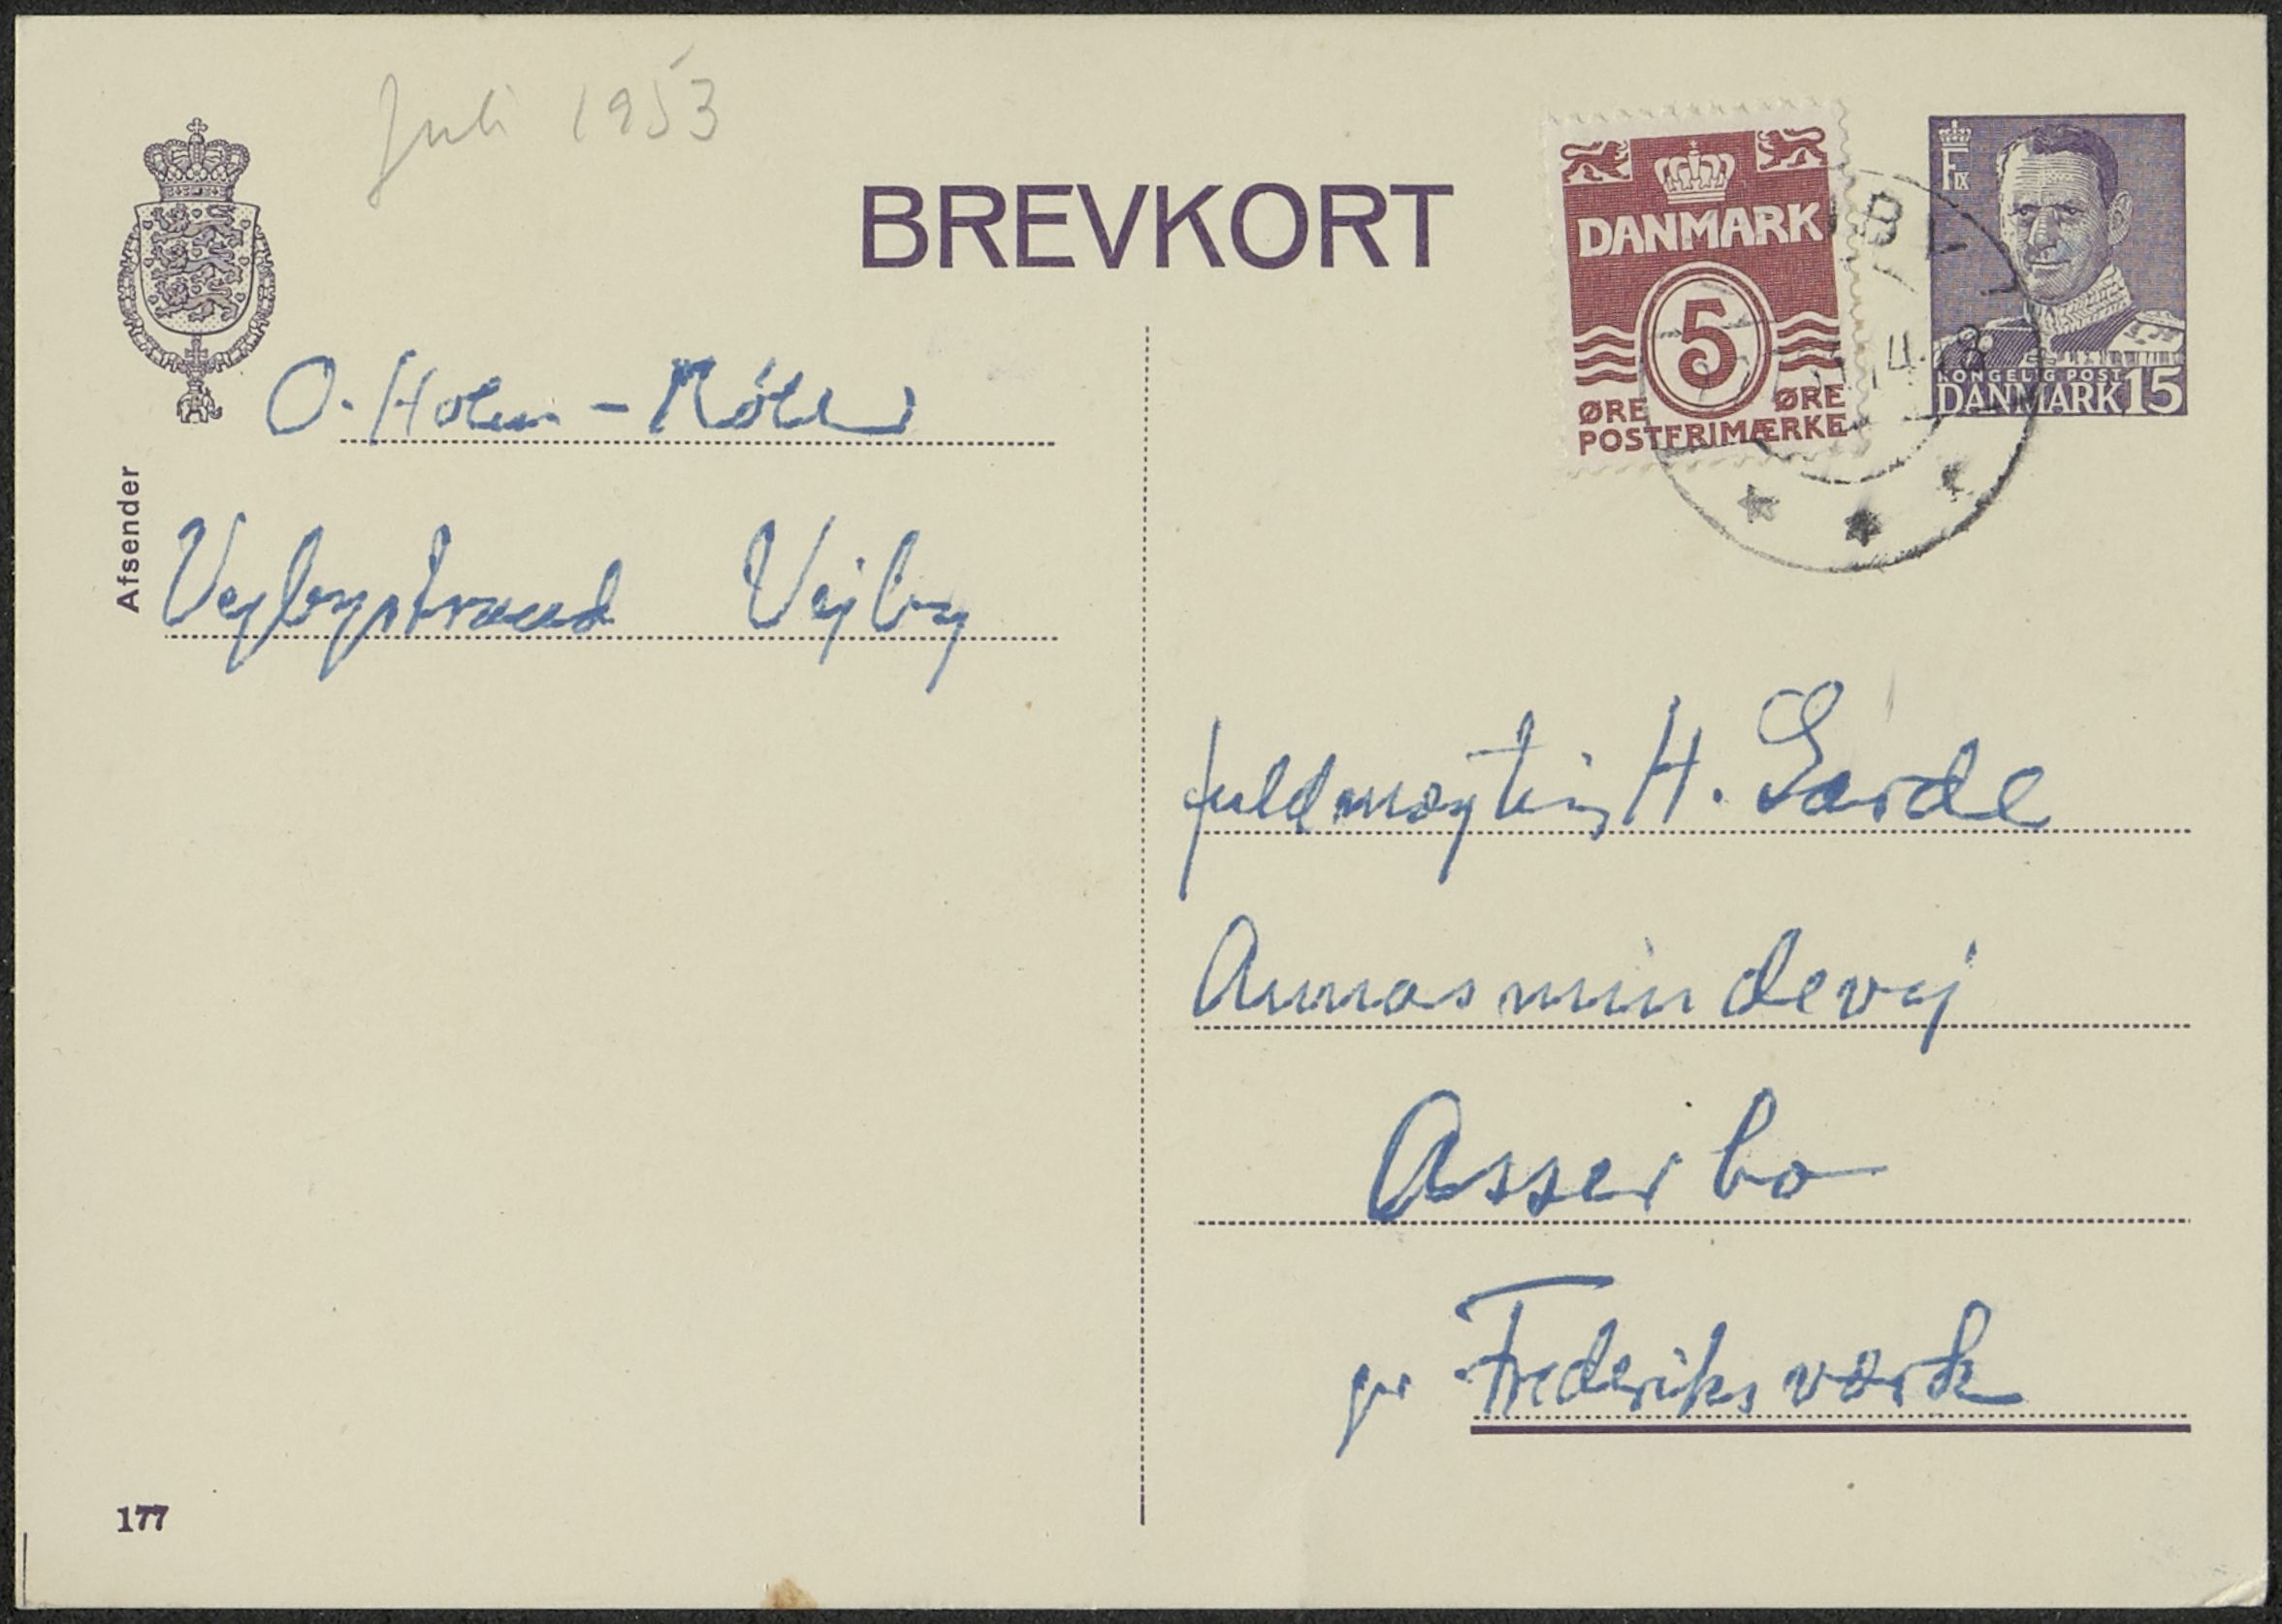 Juli 1953
BREVKORT
DANMARK
5
ØRE ØRE
POSTFRIMÆRKE
KONGELIG POST
DANMARK 15
Afsender
O. Holm-Möller
Vejbystrand Vejby
fuldmægtig H. Garde
Annasmindevej
Asserbo
pr Frederiksværk
177